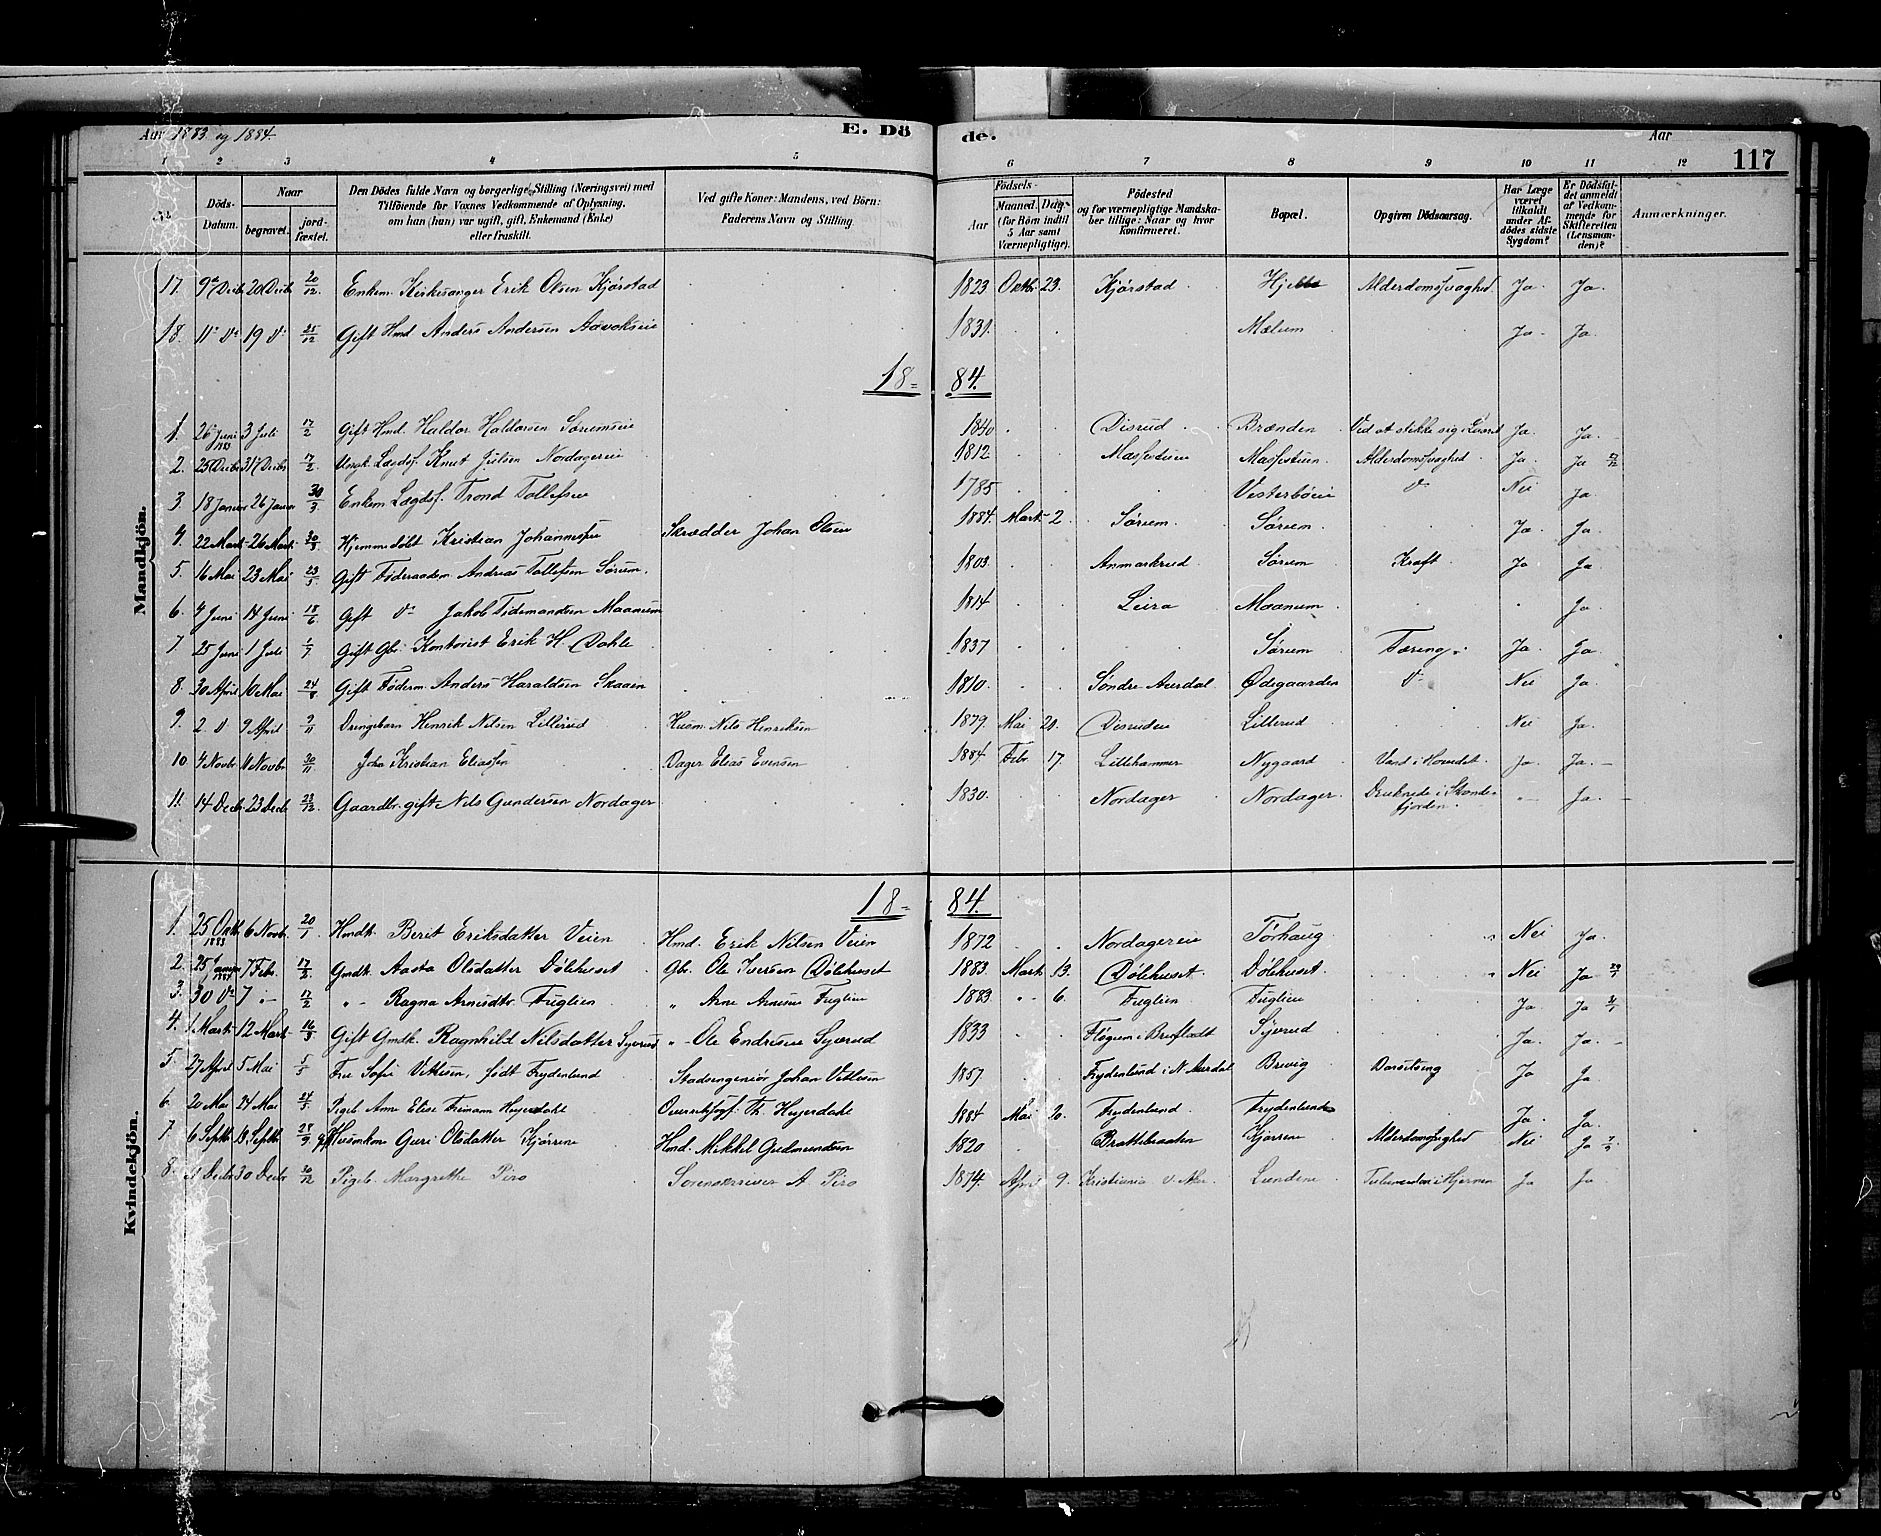 Aar 1883 og 1884.
E. Dö
de.
Aar
117
1 2 3 4 5 6 7 8 9 10 11 12
No.
Döds-Datum.
Naar
begravet.
jord-fæstet.
Den Dödes fulde Navn og borgerlige Stilling (Næringsvei) med
Tilföiende for Voxnes Vedkommende af Oplysning,
om han (hun) var ugift, gift, Enkemand (Enke)
eller fraskilt.
Ved gifte Koner: Mandens, ved Börn:
Faderens Navn og Stilling.
Födsels-
Aar
Maaned. Dag
(for Börn indtil
5 Aar samt
Værnepligtige).
Födested
og for værnepligtige Mandska-
ber tillige: Naar og hvor
konfirmeret.
Bopæl.
Opgiven Dödsaarsag.
Har Læge
været
tilkaldt
under Af-
dödes sidste
Sygdom?
Er Dödsfal-
det anmeldt
af Vedkom-
mende for
Skifteretten
(Lensman-
den)?
Anmærkninger.
Mandkjön.
17. 9de Decbr 20 Decbr 20/12. Enkem. Kirkesanger Erik Olsen Kjørstad 1823 Octbr. 23. Kjørstad Alderdomssvaghed. Ja. Ja.
18. 11 Do 19 Do 21/12 Gift Hmd Anders Andersen 1831. Mælum Ja. Ja.
18=84.
1. 26 Juni 1883 3 Juli 17/2 Gift Hmd. Haldor Haldorsen Sørumseie 1840 Disrud Brænden Ved at stikke sig i Laaret Ja. Ja.
2. 25 Decbr 31 Decbr 17/2 Ungk. Lægdsl. Knut Julsen Nordagereie 1812 Alderdomssvaghed Ja. Ja
3. 18 Januar 26 Januar 30/3 Enkem. Lægdsl. Trond Tollefsen 1785 Vesterbøeie Do Nei Ja.
4. 22 Mart. 26 Mart. 30/3 Hjemmedøbt Kristian Johannessen Skrædder Johan Olsen 1884. Mart. 2. Sørum. Sørum. Ja. Ja.
5. 16 Mai 23 Mai 23/5 Gift Føderaadsm Andreas Tollefsen Sørum. 1803. Anmarkrud Sørum Kræft. Ja Ja
6. 4 Juni 14 Juni 18/6 Gift Do Jakob Tidemandsen Maanum 1814 Leira Maanum Ja.
7. 25 Juni 1 Juli 1/7 Gift Gbr. Kontorist Erik H. Dahle 1837 Sørum Tæring. Ja. Ja.
8. 30 April 10 Mai 24/8 Gift Føderm. Anders Haraldsen Skaaen 1810. Søndre Aurdal. Ødegaarden Do Nei Ja.
9. 2 D 9 April 9/11 Drengebarn Henrik Nilsen Lillerud Husm. Nils Henriksen 1879. Mai 20. Disruden Lillerud Nei Ja.
10 4 Novbr 11 Novbr 30/11 Joha Kristian Eliassen Elias Evensen 1884. Febr. 17. Lillehammer Nygaard Vand i Hovedet. Ja. Ja. —
11. 14 Decbr 23 Decbr 23/12. Gaardbr. gift Nils Gundersen Nordager 1830. Nordager Nordager. Druknede i Strande-
fjorden. "— Ja. —
Kvindekjön.
18=84.
1. 25 Oktb. 1883 6 Novb. 20/1 Hmdt. Berit Eriksdatter Veien Hmd. Erik Nilsen Veien 1872 Nordagereie Tørhaug Nei Ja.
2. 25 1884 7 Febr. 17/2 Gmdt. Aasta Olsdatter Dølehuset Gbr. Ole Iversen Dølehuset 1883. Mart. 13. Dølehuset. Dølehuset. Nei Ja
3. 30 Do 7 "— 17/2 "— Ragna Arnesdtr. Fuglien " Arne Arnesen Fuglien 1883 "— 6. Fuglien Fuglien Ja Ja
4. 1 Mart. 12 Mart. 16/3 Gift Gmdk. Ragnhild Nilsdatter Syverud "— Ole Endresen Syverud 1833 Syverud Ja. Ja. —
5. 27 April 5 Mai 5/5 Fru Sofie Vetlesen, født Frydenlund Stadsingeniør Johan Vetlesen 1857. Frydenlund i N. Aurdal Brevig Ja Ja.
6. 20 Mai 24 Mai 24/5 Pigeb. Anne Elise Heyerdahl Th. Heyerdahl 1884 Mai 20. Frydenlund. Frydenlund Ja. Ja.
7. 6 Septb. 13 Septb. 28/9 gft Husmkone Guri Olsdatter Kjørrene Hmd. Mikkel Gudmundsen 1820 Brattebraaten Kjørrene Alderdomssvaghed Nei Ja
8. 21 Decbr 30 Decbr 30/12 Pigeb. Margrethe Piro A. Piro 1874. April 9. Kristiania Lundene Ja Ja